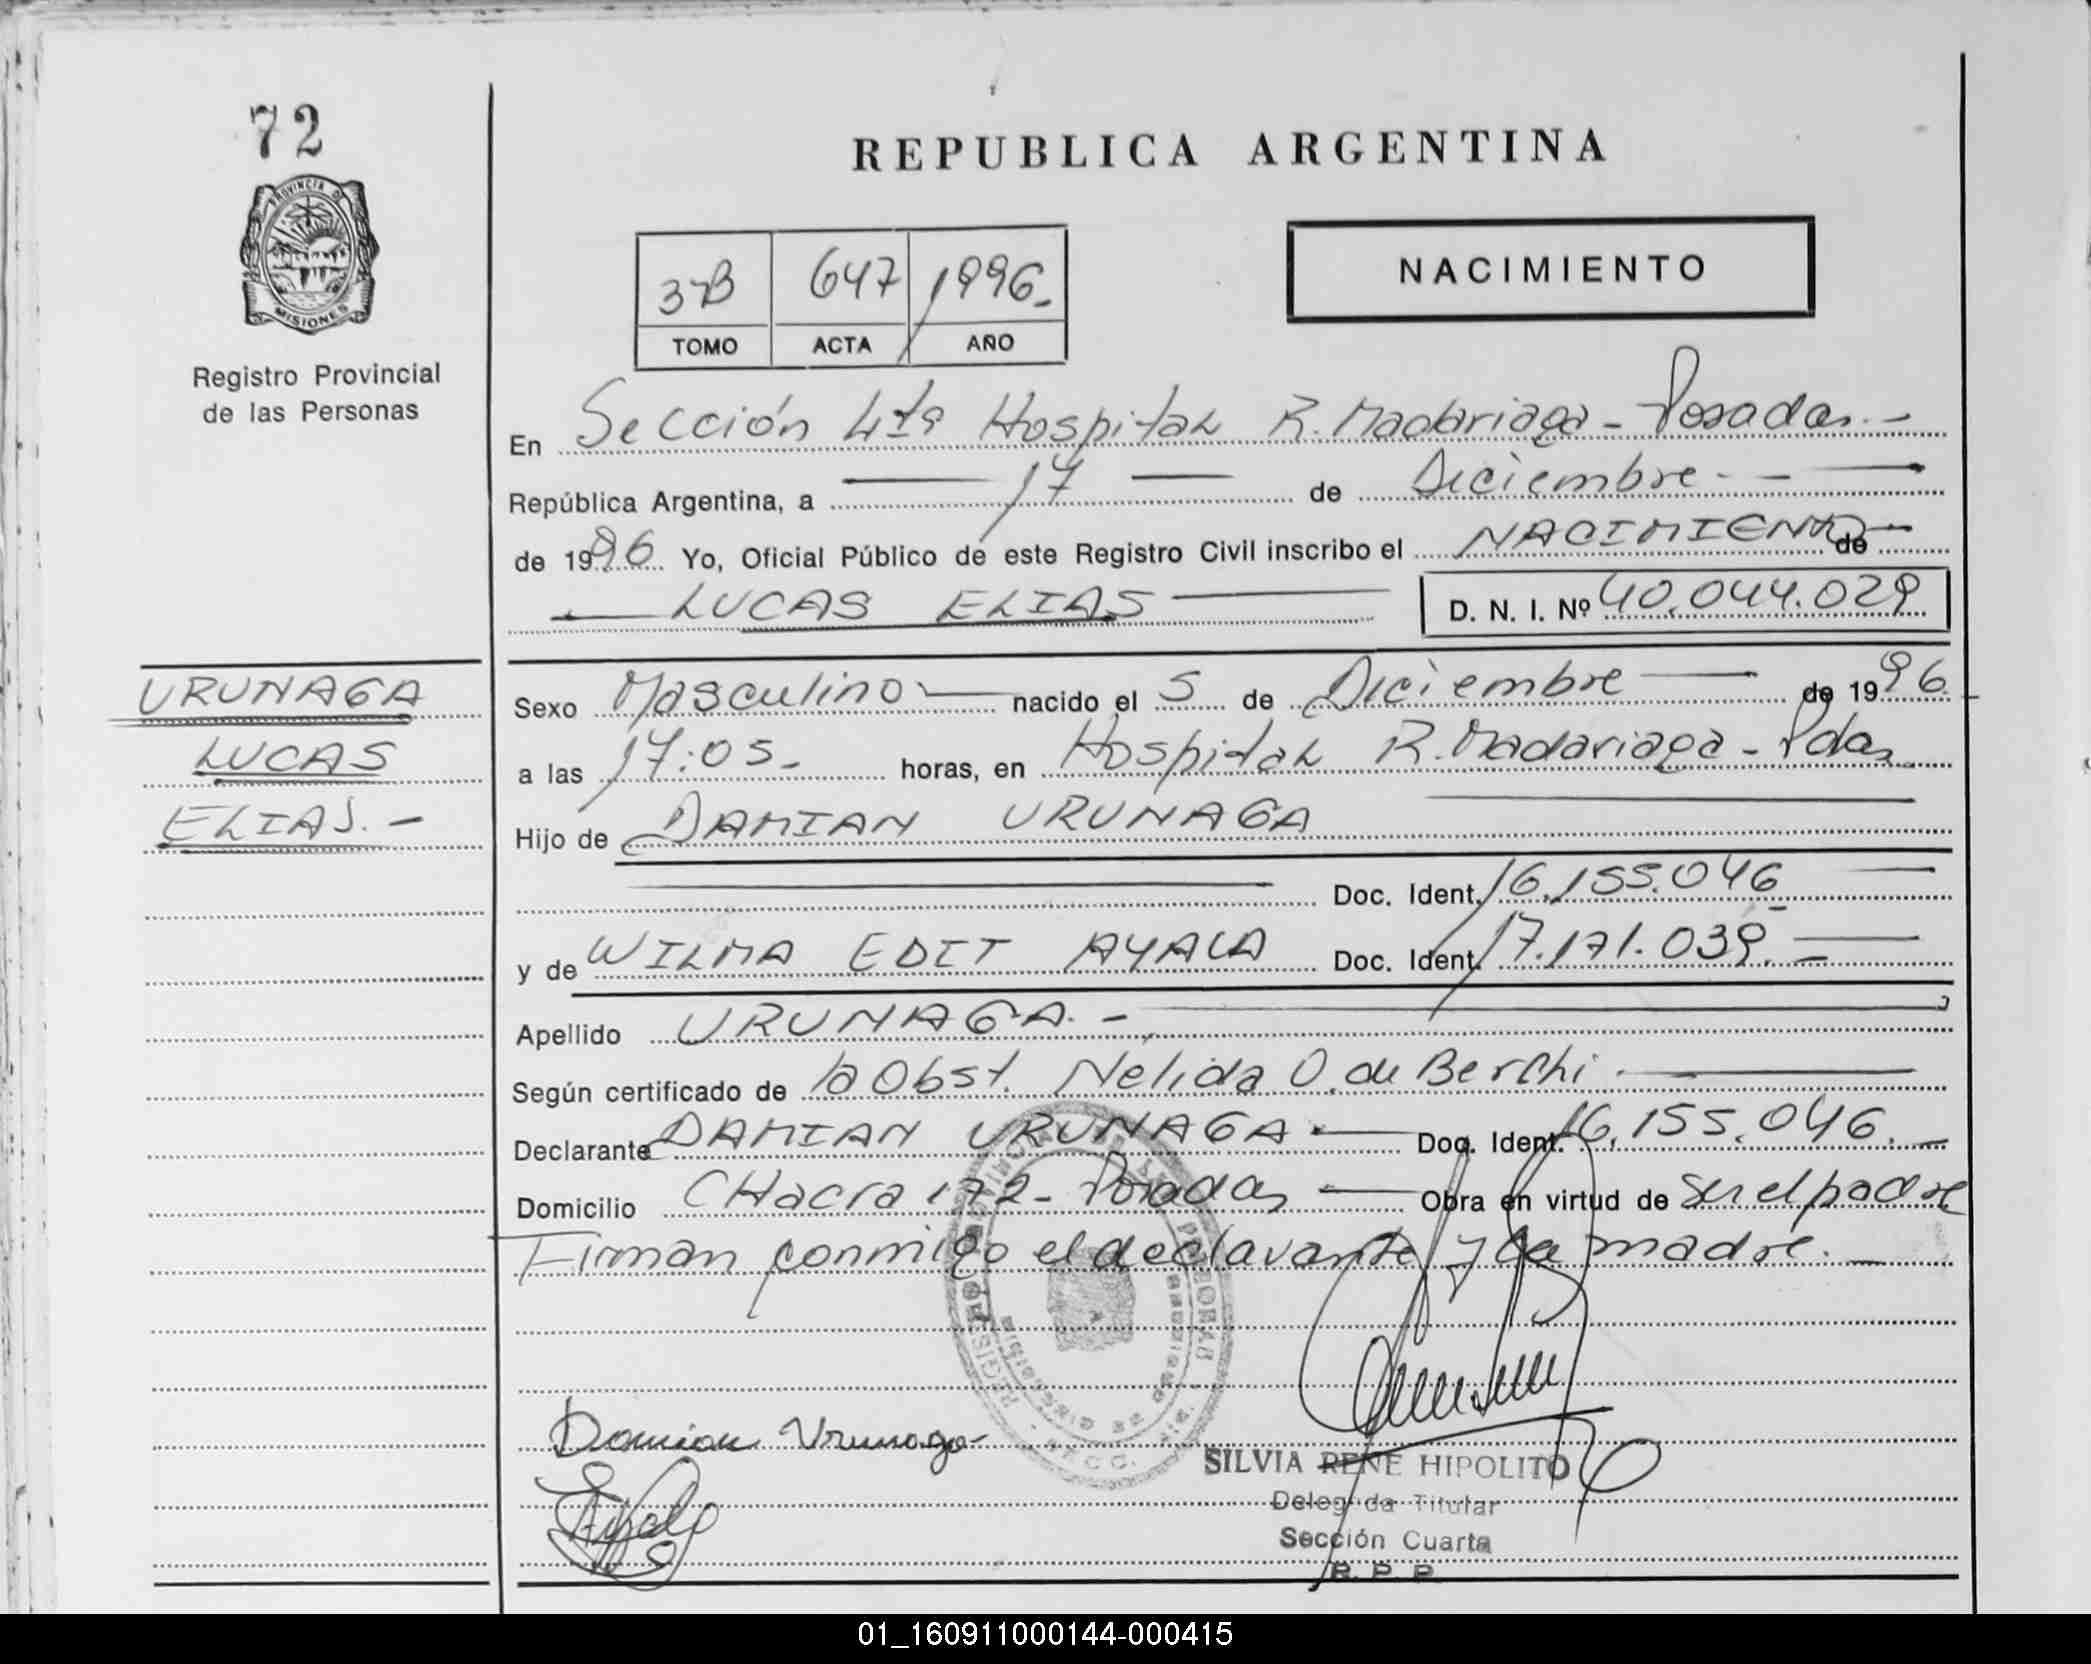 72
PROVINCIA DE
MISIONES
Registro Provincial
de las Personas
REPUBLICA ARGENTINA
3-B 647 1996.-
TOMO ACTA AÑO
NACIMIENTO
En Sección 4ta Hospital R. Madariaga - Posadas.-
República Argentina, a 17 de Diciembre.-
de 1996 Yo, Oficial Público de este Registro Civil inscribo el NACIMIENTO de
LUCAS ELIAS D. N. I. Nº 40.044.029
URUNAGA
LUCAS
ELIAS.-
Sexo Masculino nacido el 5 de Diciembre de 1996
a las 17:05.- horas, en Hospital R. Madariaga - Pdas.
Hijo de DAMIAN URUNAGA
Doc. Ident. 16.155.046
y de WILMA EDIT AYALA Doc. Ident. 17.171.039.-
Apellido URUNAGA.-
Según certificado de la Obst. Nélida O. de Berchi.
Declarante DAMIAN URUNAGA Doc. Ident. 16.155.046.-
Domicilio CHacra 172 - Posadas Obra en virtud de ser el padre
Firman conmigo el declarante y la madre.-
Damian Urunaga
Ayala
SILVIA RENE HIPOLITO
Delegada Titular
Sección Cuarta
R. P. P.
01_160911000144-000415